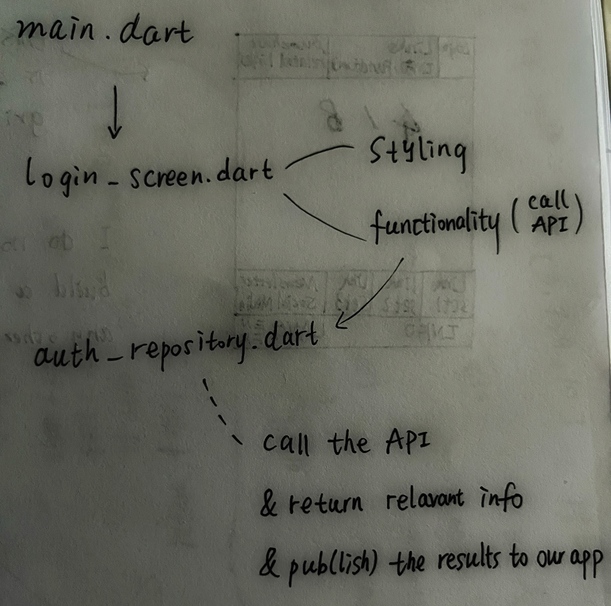 main.dart
login_screen.dart
Styling
functionality (call API)
auth_repository.dart
call the API
& return relavant info
& pub(lish) the results to our app